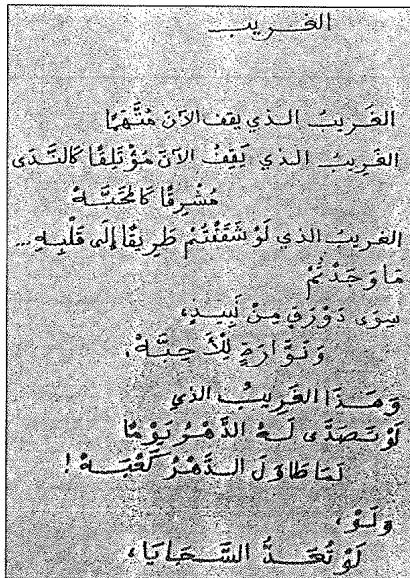 الغريب
الغَريبُ الذي يقف الآنَ مُتَّهَمًا
الغَريبُ الذي يَقِفُ الآنَ مُؤْتَلِقًا كَالنَّدَى
مُشْرِقًا كَالمَحَبَّهْ
الغريبُ الذي لَوْ شَقَقْتُمْ طَرِيقًا إِلَى قَلْبِهِ...
مَا وَجَدْتُمْ
سِوَى دَوْرَقٍ مِنْ نَبِيذٍ،
وَنَوَّارَةٍ لِلْأَحِبَّهْ،
وَهَذَا الغَرِيبُ الذي
لَوْ تَصَدَّى لَهُ الدَّهْرُ يَوْمًا
لَمَا طَاوَلَ الدَّهْرُ كَعْبَهْ!
وَلَوْ،
لَوْ تُعَدُّ السَّجَايَا،